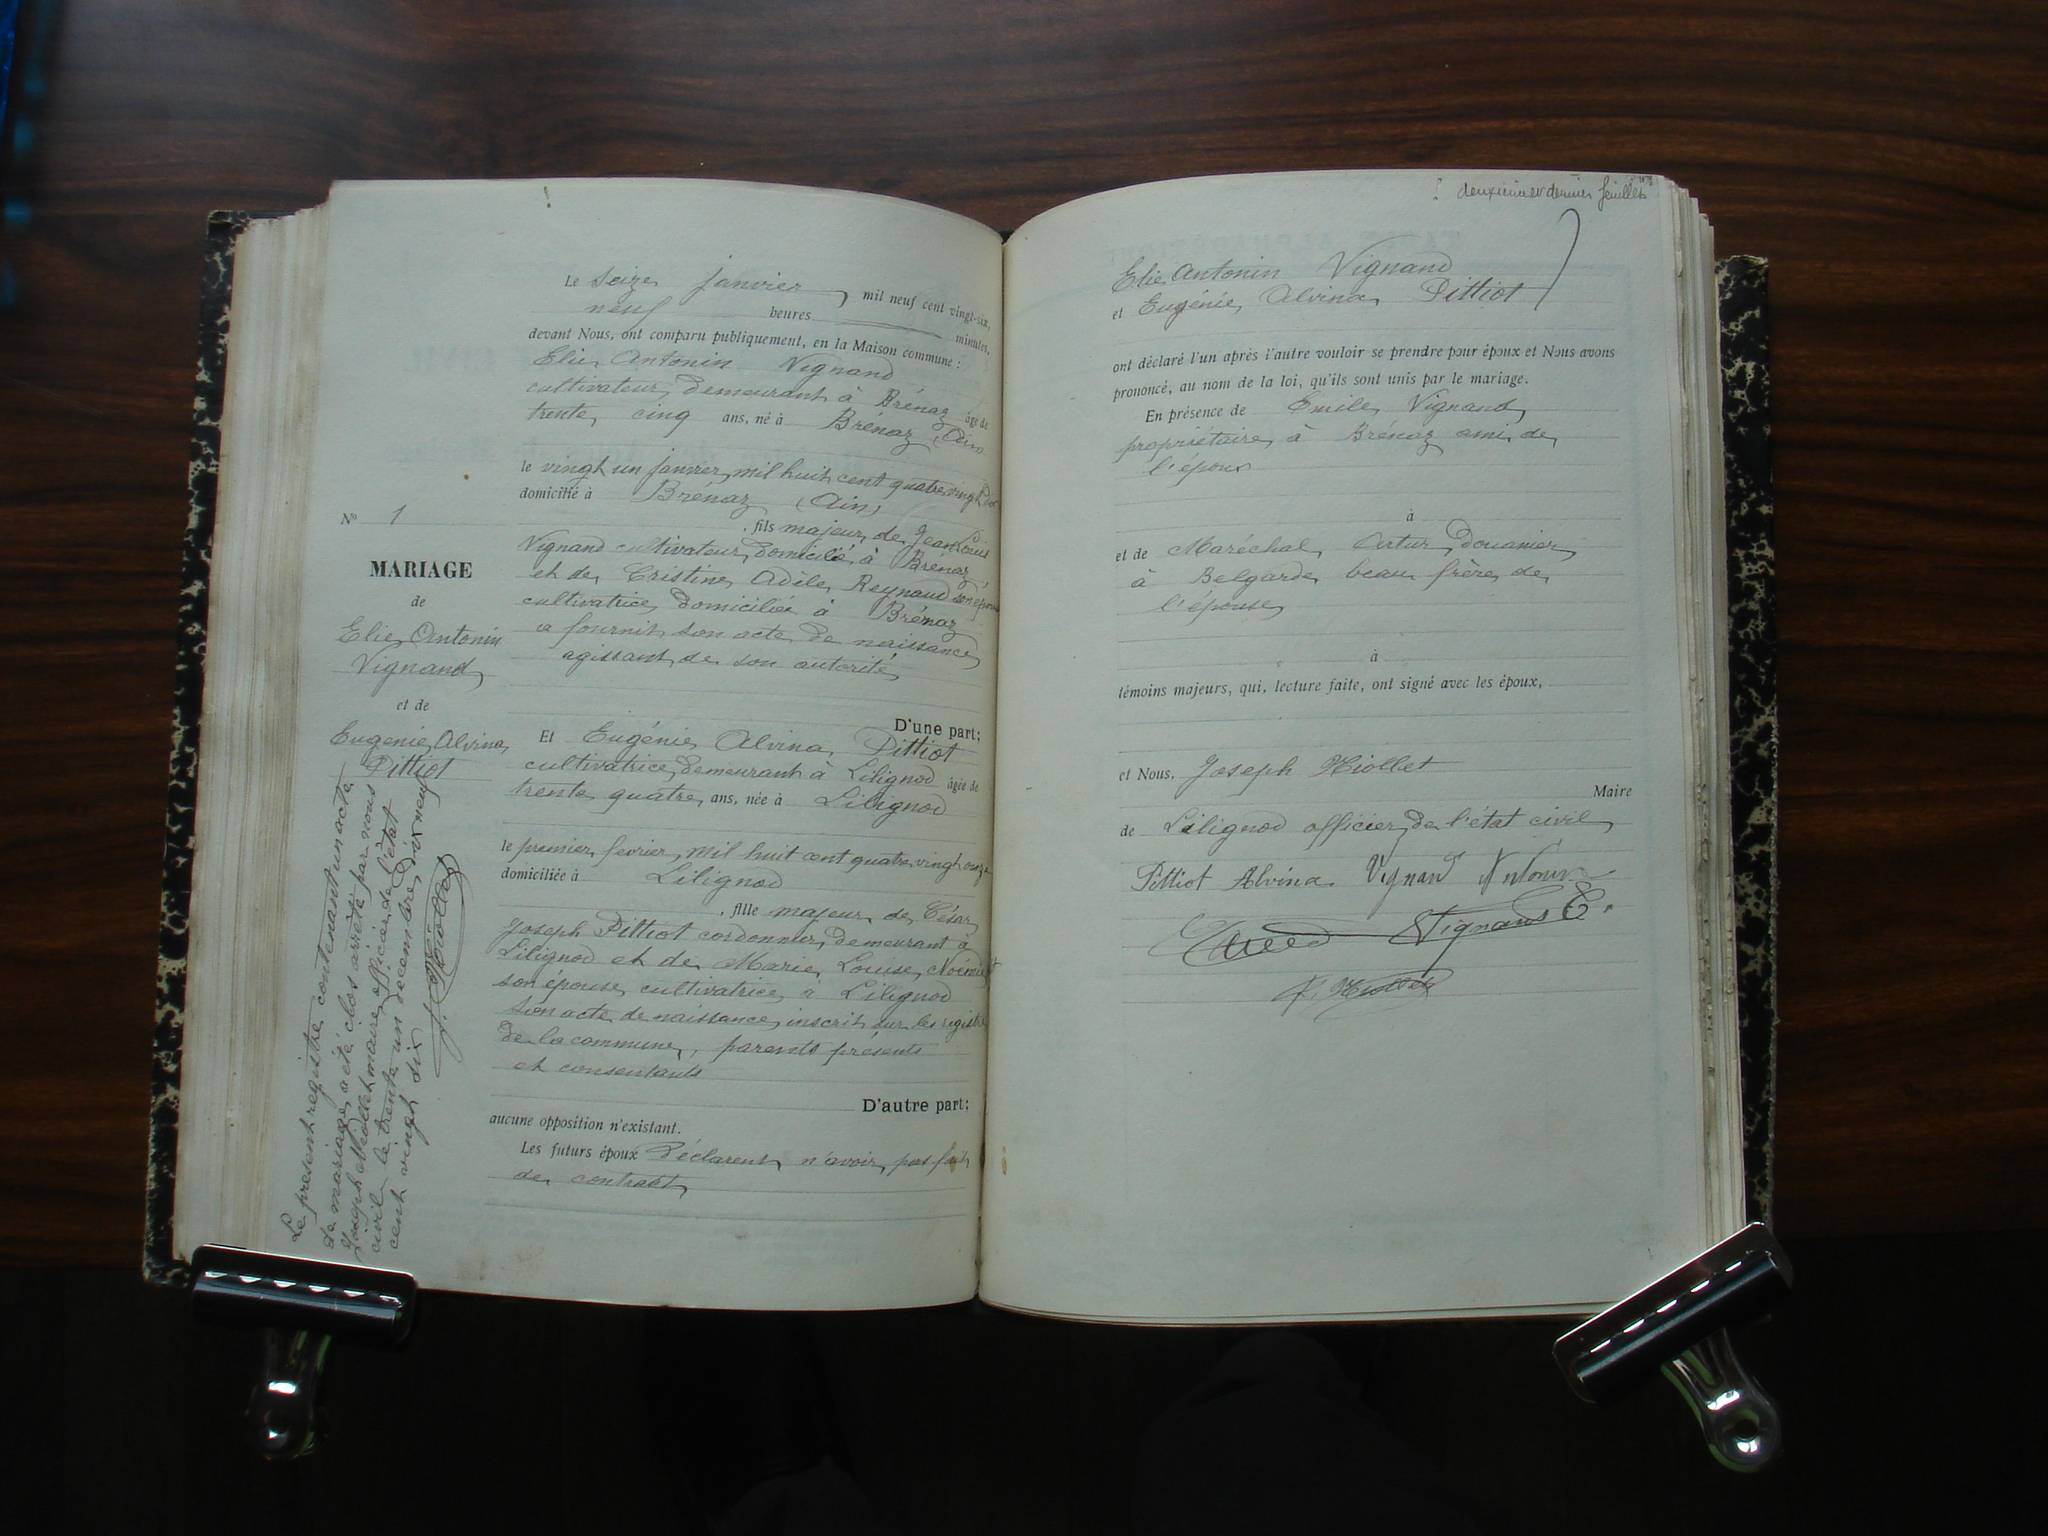 N° 1
MARIAGE
de
Elie Antonin
Vignand
et de
Eugénie Alvina
Pittiot
Le présent registre contenant un acte
de mariage a été clos arrêté par nous
Joseph Miollet maire officier de l'état
civil le trente un décembre dix neuf
cent vingt six
J. Miollet
Le Seize janvier, mil neuf cent vingt-six,
neuf heures minutes,
devant Nous, ont comparu publiquement, en la Maison commune :
Elie Antonin Vignand
cultivateur, demeurant à Brénaz âgé de
trente cinq ans, né à Brénaz (Ain)
le vingt un janvier mil huit cent quatre vingt
domicilié à Brénaz (Ain)
, fils majeur de Jean Louis
Vignand cultivateur, domicilié à Brénaz
et de Cristine Adèle Reynaud son épouse
cultivatrice domiciliée à Brénaz
a fournit son acte de naissance
agissant de son autorité
D'une part;
Et Eugénie Alvina Pittiot
cultivatrice, demeurant à Lilignod âgée de
trente quatre ans, née à Lilignod
le premier fevrier, mil huit cent quatre vingt onze
domiciliée à Lilignod
, fille majeur de César
Joseph Pittiot cordonnier, demeurant à
Lilignod et de Marie Louise
son épouse cultivatrice à Lilignod
son acte de naissance inscrit sur les registre
de la commune, parents présents
et consentants
D'autre part;
aucune opposition n'existant.
Les futurs époux déclarent n'avoir pas fait
de contract
deuxième et dernier feuillet
Elie Antonin Vignand
et Eugénie Alvina Pittiot
ont déclaré l'un après l'autre vouloir se prendre pour époux et Nous avons
prononcé, au nom de la loi, qu'ils sont unis par le mariage.
En présence de Emile Vignand
propriétaire à Brénaz ami de
l'époux
à
et de Maréchal Artur, douanier
à Belgarde beau frère de
l'épouse
à
témoins majeurs, qui, lecture faite, ont signé avec les époux,
et Nous, Joseph Miollet
Maire
de Lilignod officier de l'état civil
Pittiot Alvina Vignand Antonin
Vignand E.
J. Miollet